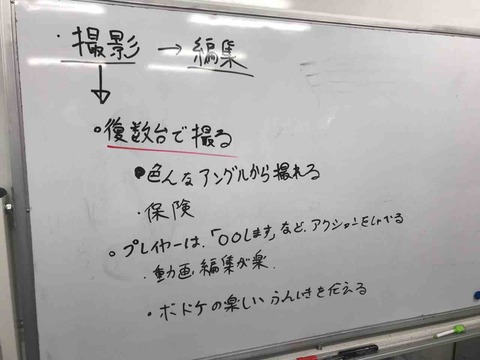 ・撮影 → 編集
↓
○複数台で撮る
●色んなアングルから撮れる
・保険
○プレイヤーは、「〇〇します」など、アクションを
・動画編集が楽
・ボドケの楽しい を伝える